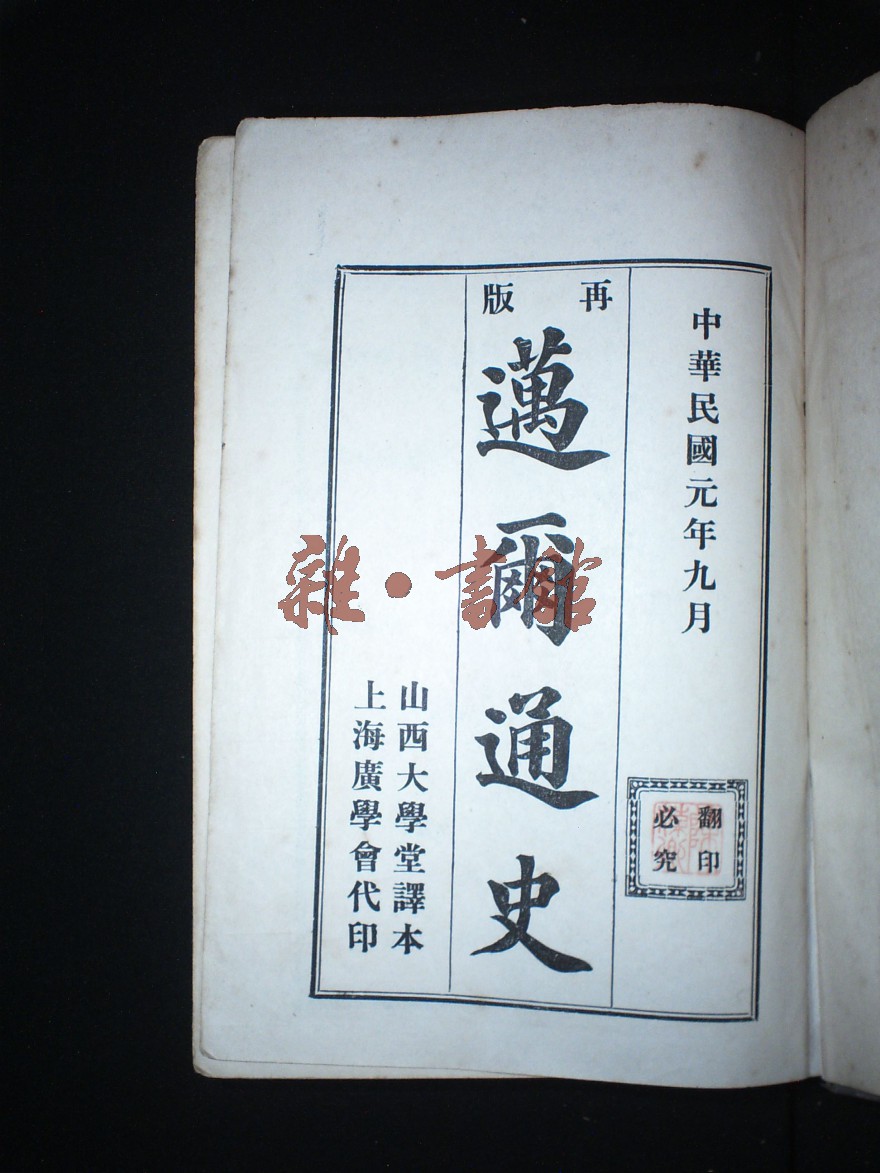 中華民國元年九月
翻印
必究
再版
邁爾通史
山西大學堂譯本
上海廣學會代印
雜·書館